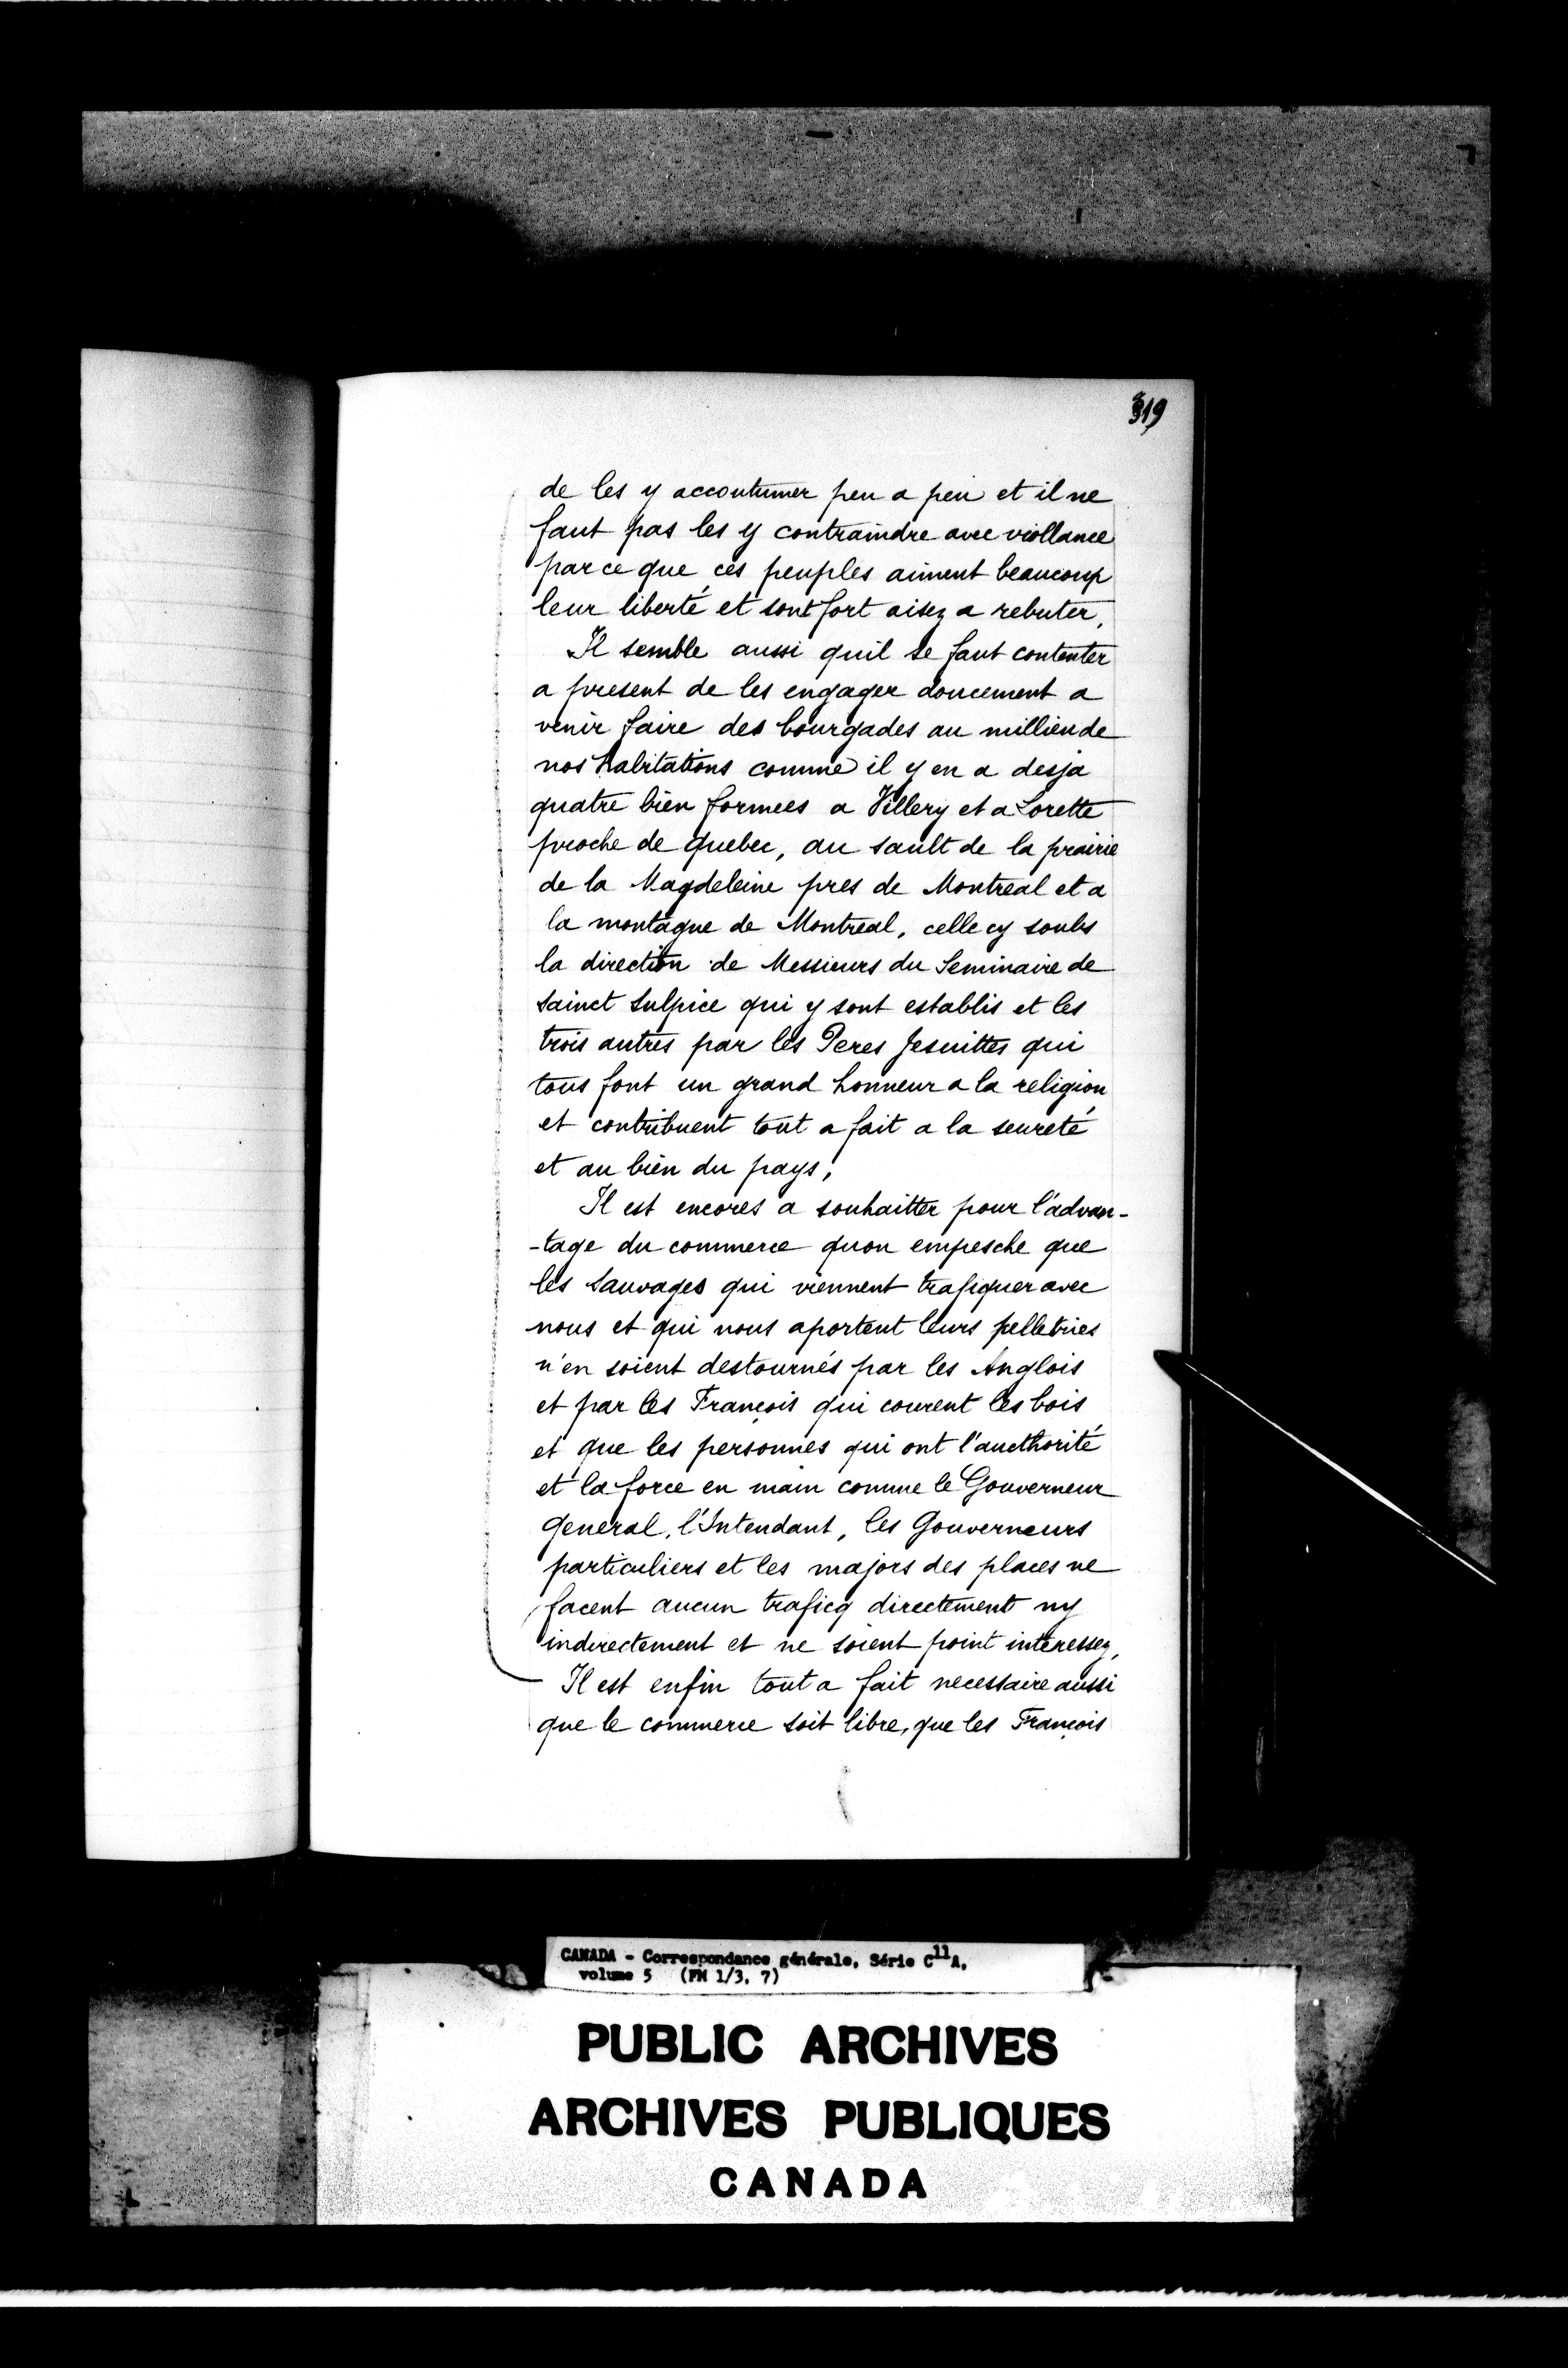 319
de les y accoutumer peu a peu et il ne
faut pas les y contraindre avec viollance
parce que ces peuples aiment beaucoup
leur liberté et sont fort aisez a rebuter.
Il semble aussi quil se faut contenter
a present de les engager doucement a
venir faire des bourgades au millieu de
nos habitations comme il y en a desja
quatre bien formees a Villery et a Lorette
proche de quebec, au sault de la prairie
de la Magdeleine pres de Montreal et a
la montagne de Montreal, celle cy soubs
la direction de Messieurs du Seminaire de
sainct Sulpice qui y sont establis et les
trois autres par les Peres Jesuittes qui
tous font un grand honneur a la religion
et contribuent tout a fait a la seureté
et au bien du pays,
Il est encores a souhaitter pour l'advan-
-tage du commerce quon empesche que
les Sauvages qui viennent trafiquer avec
nous et qui nous aportent leurs pelletries
n'en soient destournés par les Anglois
et par les François qui courent les bois
et que les personnes qui ont l'aucthorité
et la force en main comme le Gouverneur
general, l'Intendant, les Gouverneurs
particuliers et les majors des places ne
facent aucun traficq directement ny
indirectement et ne soient point interessez,
Il est enfin tout a fait necessaire aussi
que le commerce soit libre, que les François
CANADA - Correspondance générale, Série C11A,
volume 5 (FM 1/3, 7)
PUBLIC ARCHIVES
ARCHIVES PUBLIQUES
CANADA